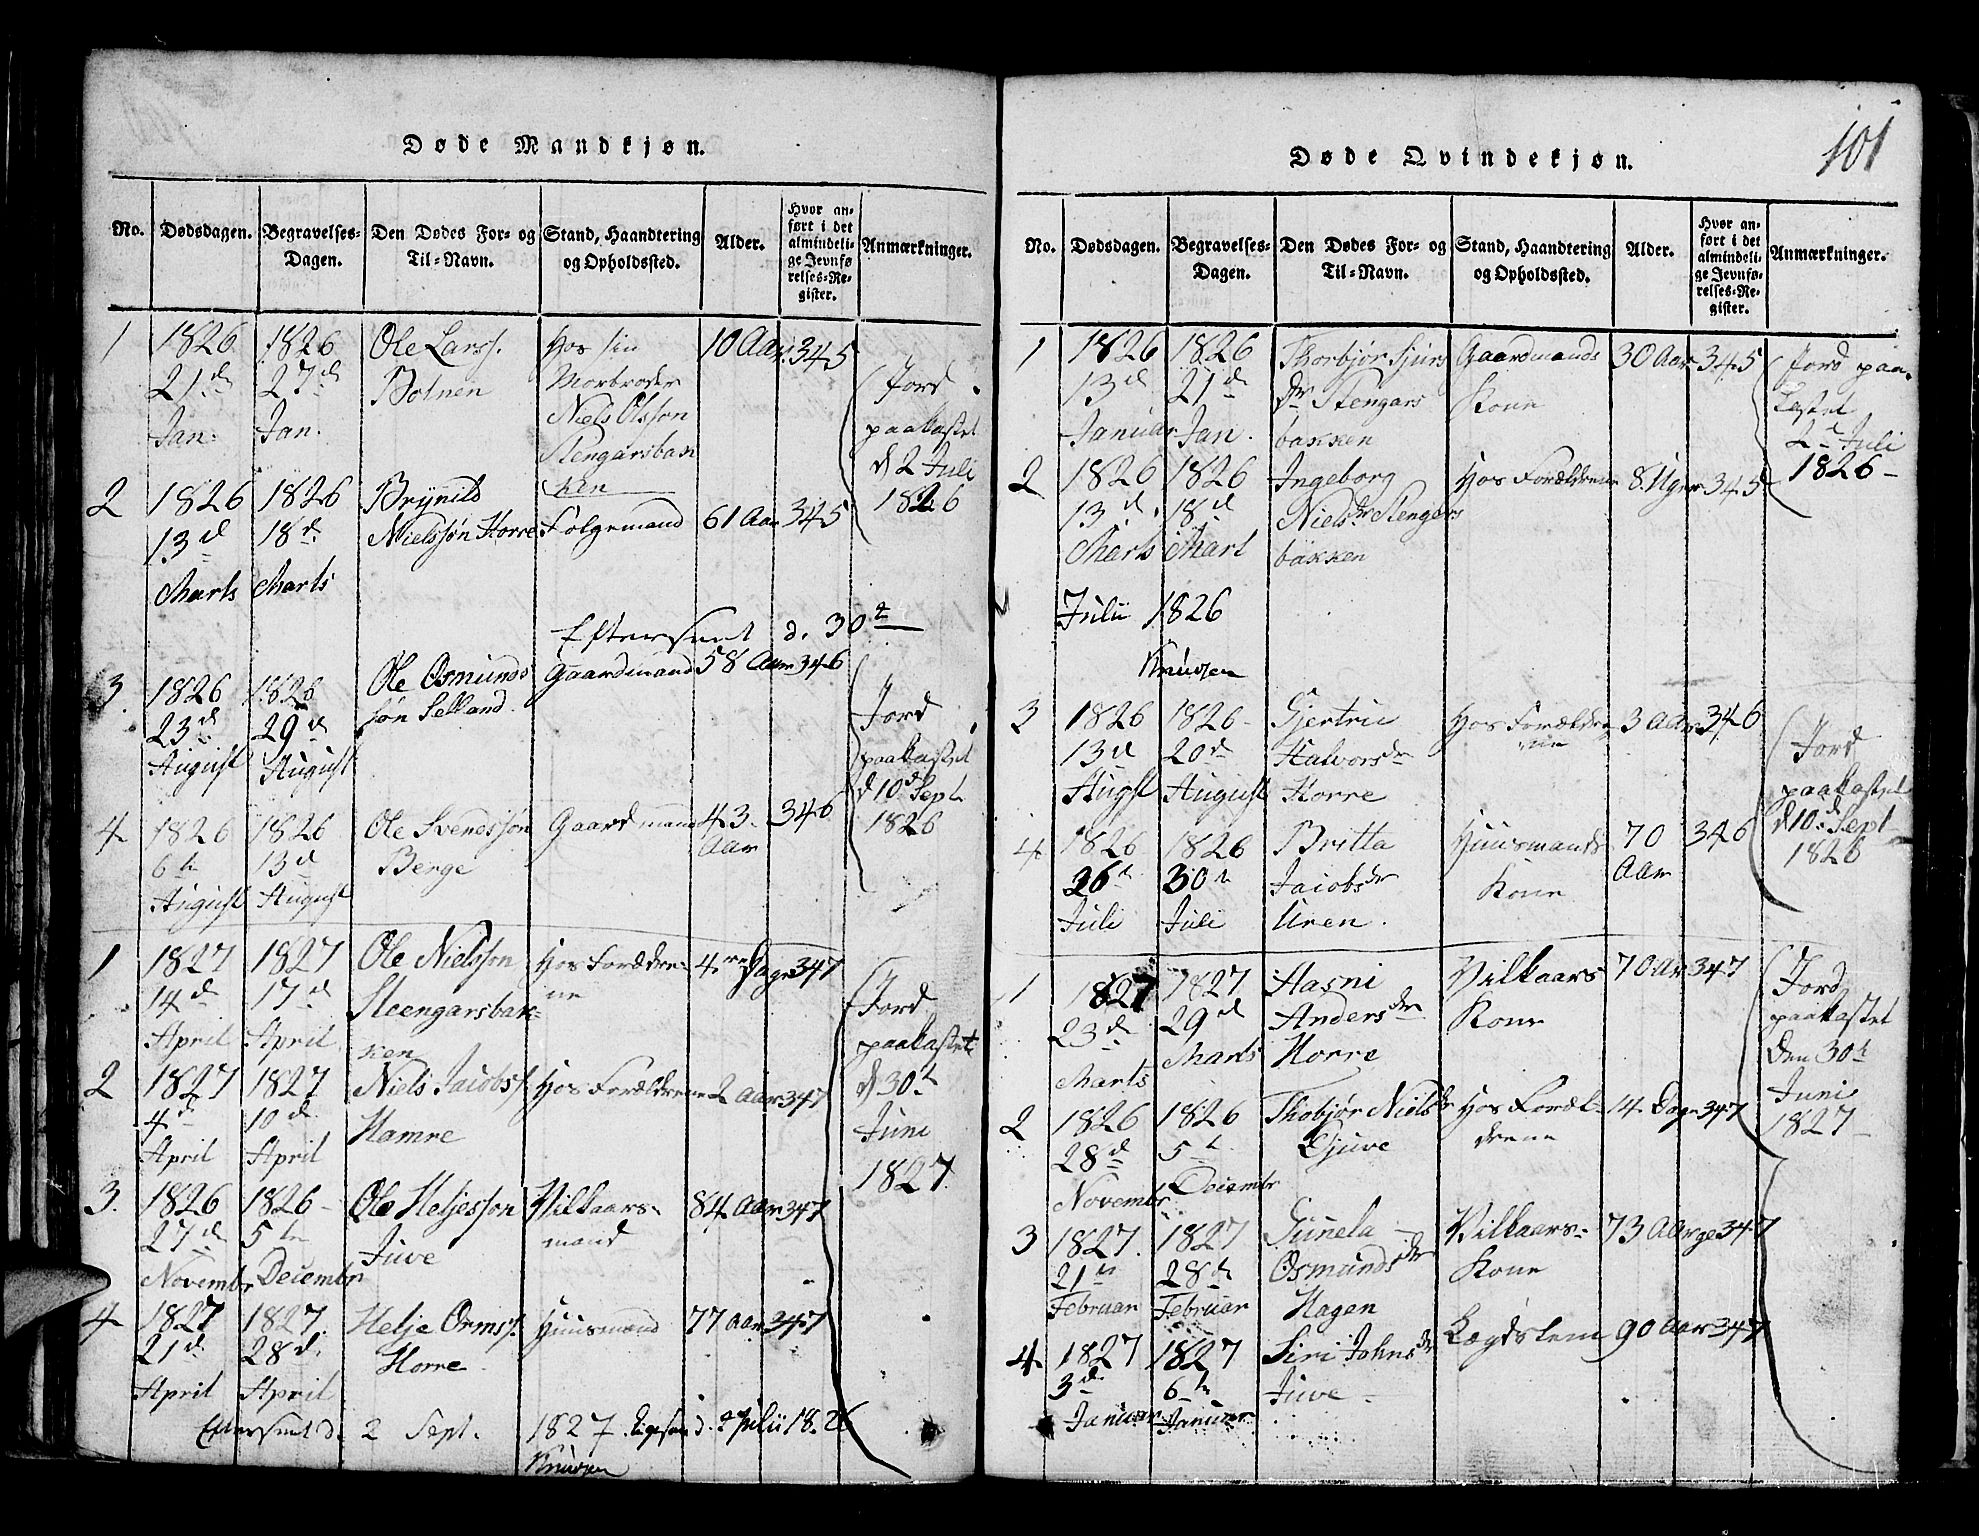 Døde Mandkjøn.
No. Dødsdagen. Begravelses-Dagen. Den Dødes For- og Til-Navn. Stand, Haandtering og Opholdssted. Alder. Hvor anført i det almindelige Jevnførelses-Register. Anmærkninger.
1 1826 1826 Ole Larss. Hos sin 10 Aar 345
21d 27d Bolnen Morbroder Jord
Jan. Jan. Niels Olsson paakastet
Stengarsbak d 2 Juli
2 1826 1826 Brynild ken 1826
13d 18d Nielssøn Horre Følgemand 61 Aar 345
Marts Marts
Efterseet d. 30t
3. 1826 1826 Ole Osmunds Gaardmand 58 Aar 346
23d 29d søn Selland. Jord
August August paakastet
d 10d Sept.
4 1826 1826 Ole Svendssøn Gaardmand 43. 346 1826
6te 13d Berge Aar
August August
1 1827 1827 Ole Nielsson Hos Forældre- 4re Dage 347
14d 17d Steengarsbak- ne Jord
April April ken paakastet
2 1827 1827 Niels Jacobss. Hos Forældrene 2 Aar 347 d 30te
4d 10d Hamre Juni
April April 1827
3. 1826 1826 Ole Heljesson Vilkaars- 84 Aar 347
27d 5te Juve mand
Novembr Decembr
4 1827 1827. Helje Ormss. Huusmand 77 Aar 347
21d 28d. Horre
April April
Efterseet d. 2 Sept. 1827 d. 2 Julii 1826
Knudsen
101
Døde Qvindekjøn.
No. Dødsdagen. Begravelses-Dagen. Den Dødes For- og Til-Navn. Stand, Haandtering og Opholdssted. Alder. Hvor anført i det almindelige Jevnførelses-Register. Anmærkninger.
1 1826 1826 Thorbjør Sjurs Gaardmands 30 Aar 345 Jord paa-
13d 21d dr Stengars Kone kastet
Januar Jan. bakken 2d Juli
2 1826 1826 Ingeborg Hos Forældrene 8 Uger 345 1826
13d. 18d Nielsdr Stengars
Marts Mart bakken
Julii 1826
Knudsen
3 1826 1826 Gjertrie Hos Forældre 3 Aar 346
13d 20d Halvorsdr ne Jord
Augst August Horre paakastet
4 1826 1826 Britta Huusmands 70 346 d 10d Sept
26te 30te Jacobsdr Kone Aar 1826
Juli Juli Uren.
1 1827 1827 Hasni Vilkaars 70 Aar 347 Jord
23d 29d Andersdr Kone paakastet
Marts Marts Horre den 30te
2 1826 1826 Thobjør Nielsdr Hos Foræl- 14 Dage 347 Juni
28d 5te Ljuve drene 1827
Novembr Decembr
3 1827. 1827 Gunela Vilkaars- 73 Aar 347
21te 28de Osmundsdr Kone
Februar Februar Hagen
4 1827 1827 Siri Johnsdr Lægdslem 90 Aar 347
3d 6te Juve
Januar Januar